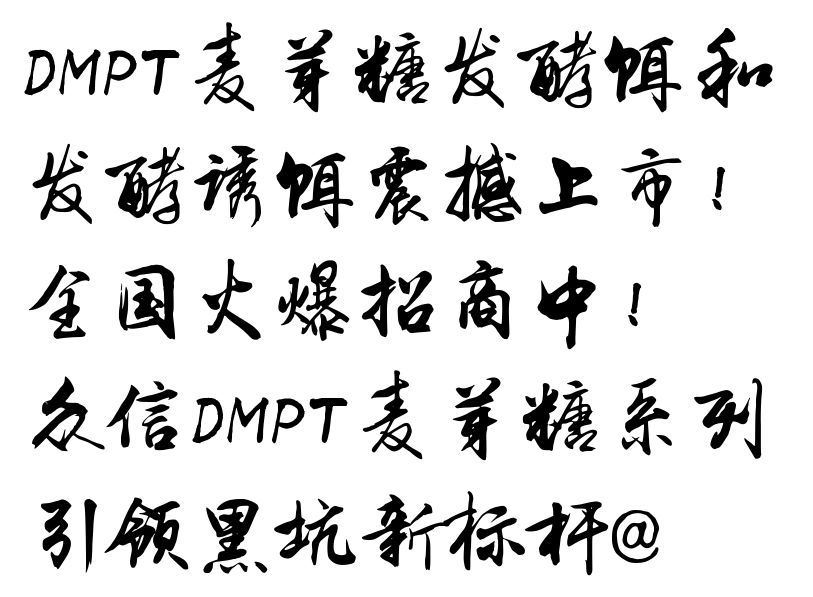 DMPT麦芽糖发酵饵和
发酵诱饵震撼上市！
全国火爆招商中！
众信DMPT麦芽糖系列
引领黑坑新标杆@